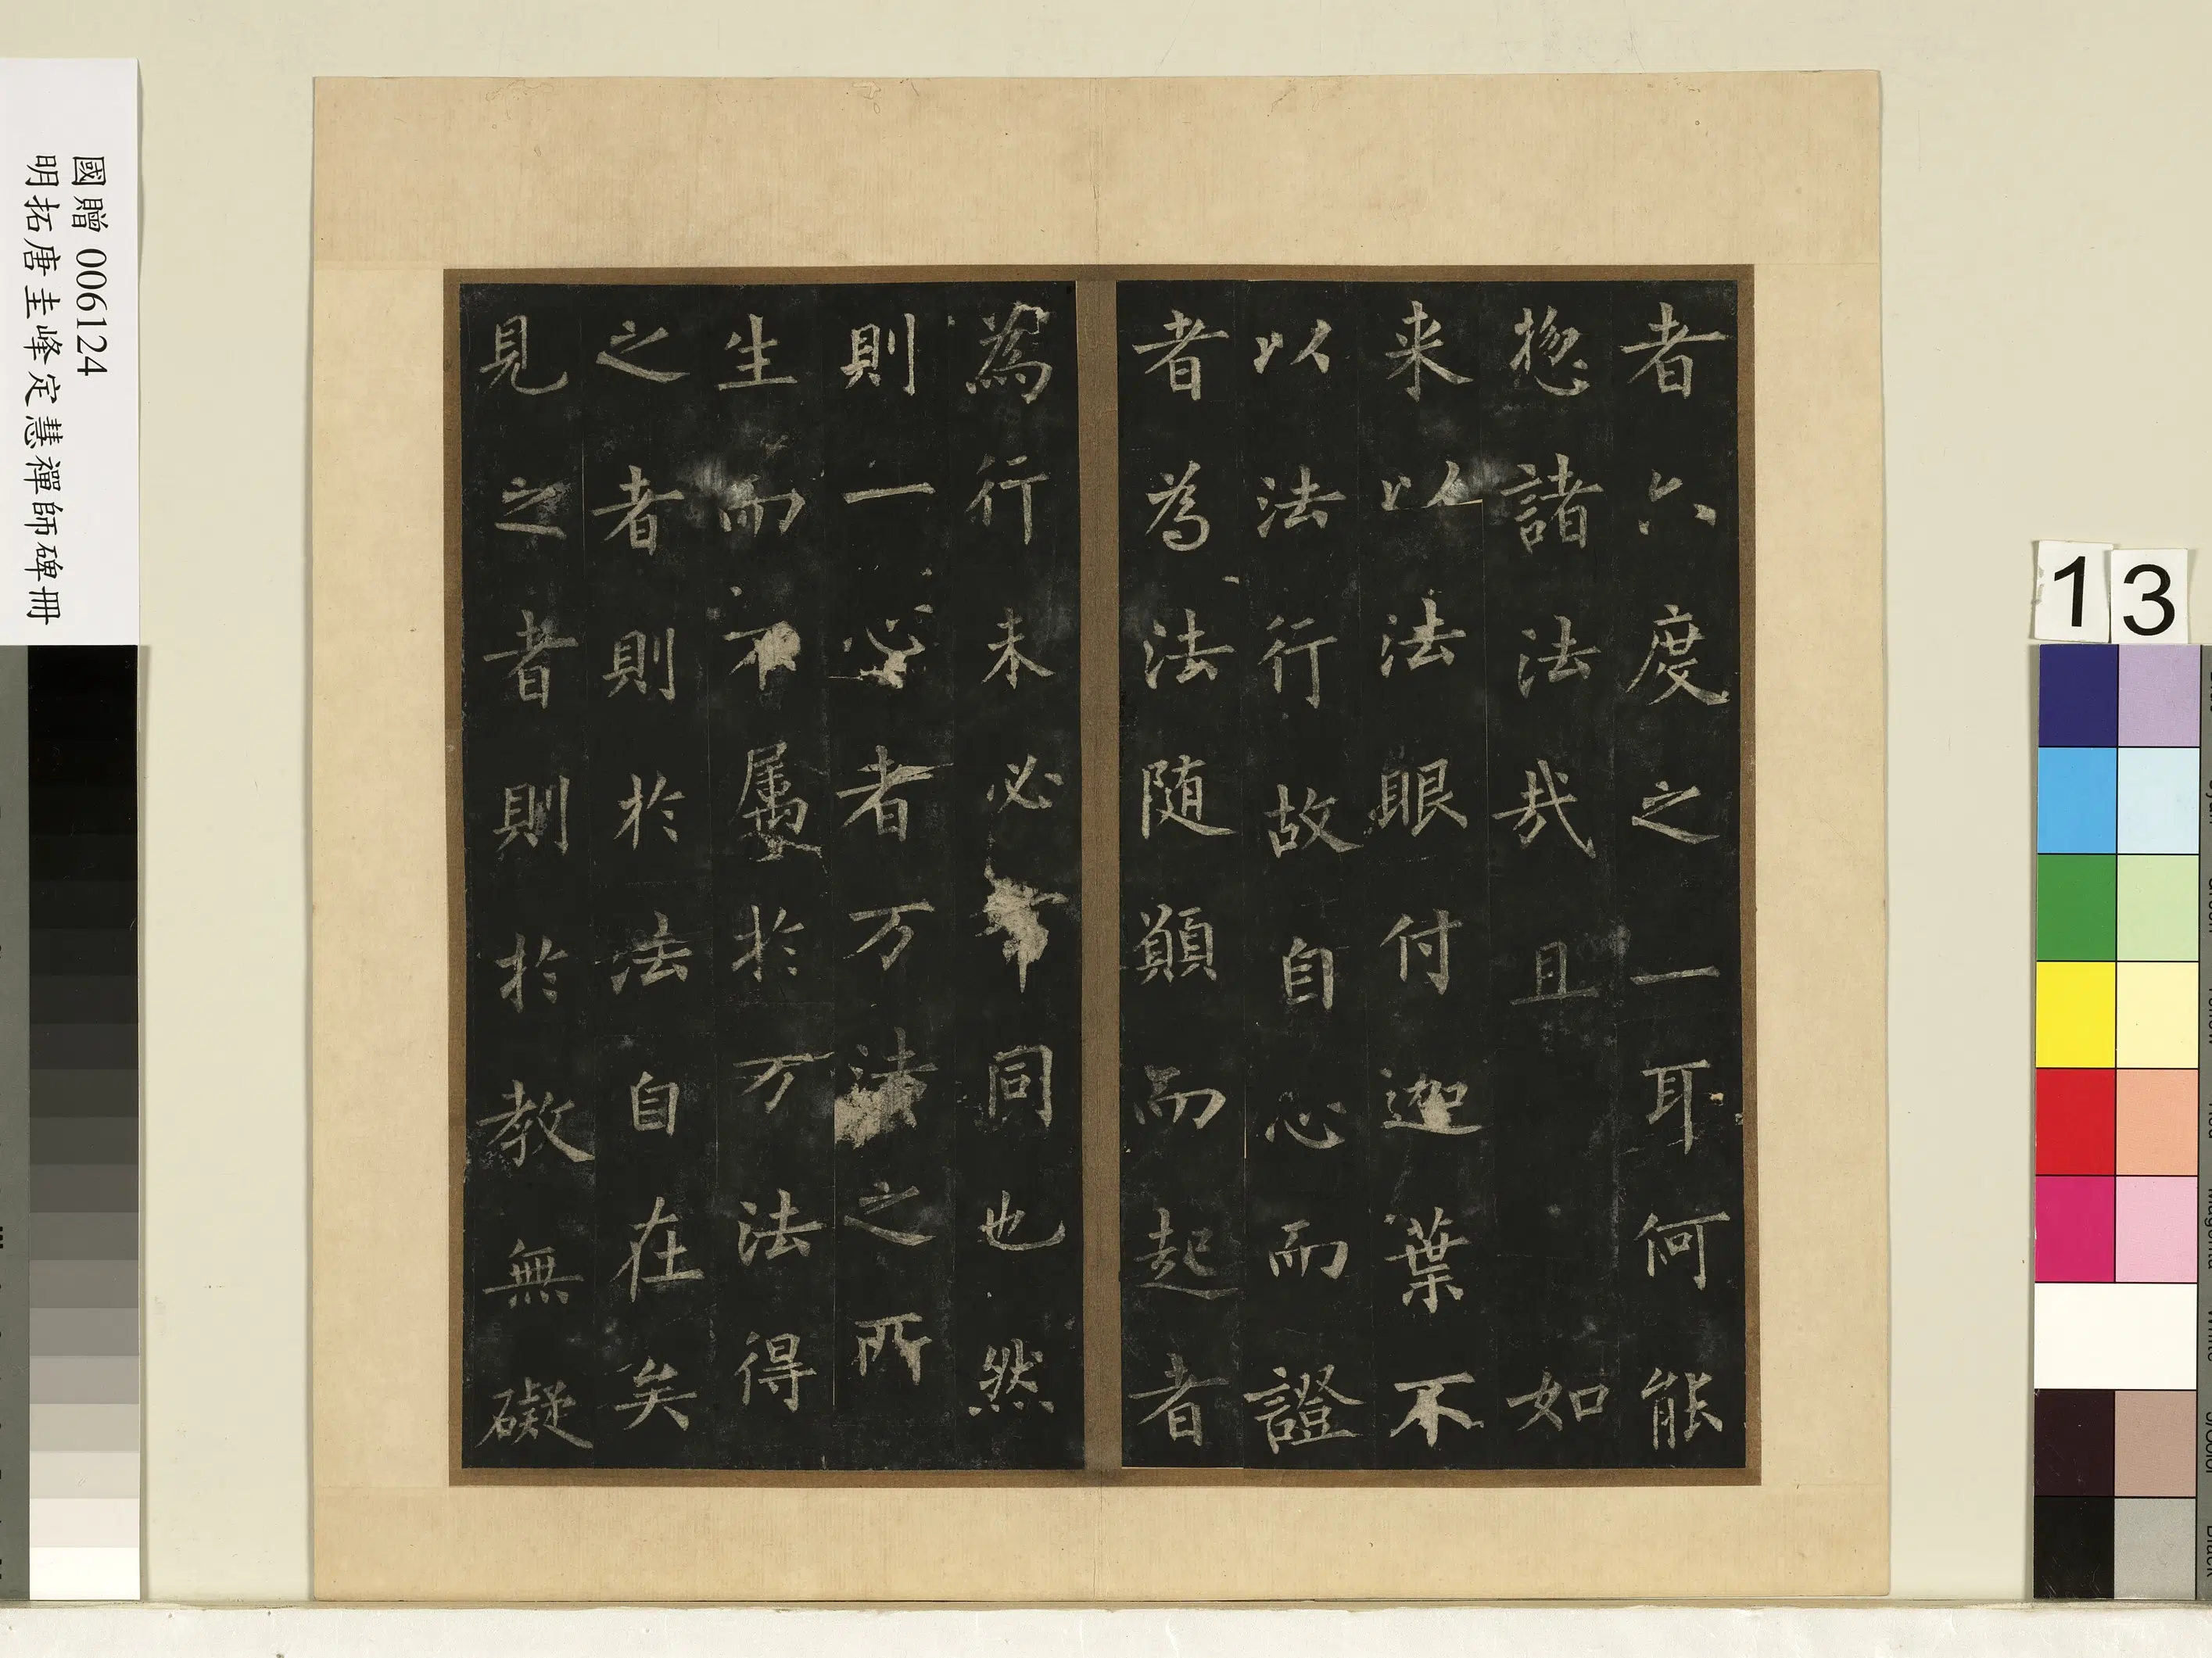 國贈 006124
明拓唐圭峰定慧禪師碑冊
13
者六度之一耳何能
揔諸法㢤且 如
来以法眼付迦葉不
以法行故自心而證
者為法随顚而起者
為行未必常同也然
則一心者万法之所
生而不属於万法得
之者則於法自在矣
見之者則於教無礙